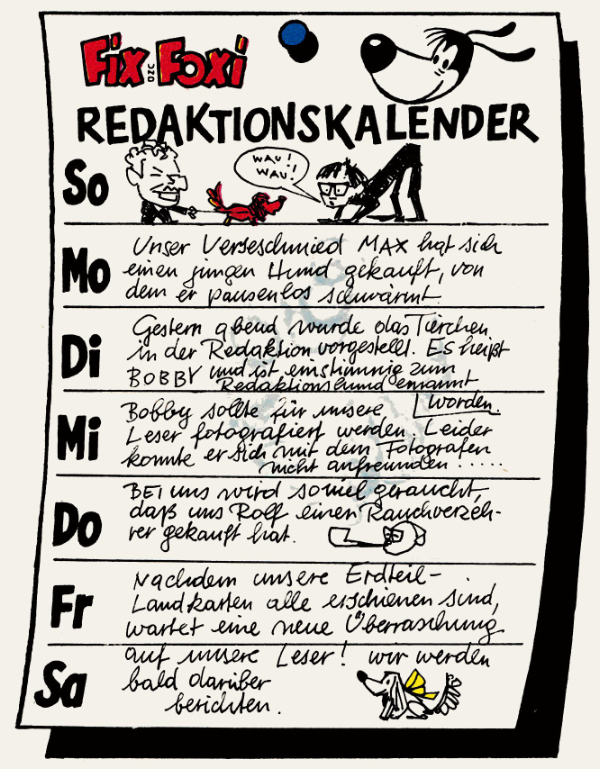 FIX UND FOXI
REDAKTIONSKALENDER
So
WAU!
WAU!
Mo
Unser Verseschmied MAX hat sich
einen jungen Hund gekauft, von
dem er pausenlos schwärmt.
Di
Gestern abend wurde das Tierchen
in der Redaktion vorgestellt. Es heißt
BOBBY und ist einstimmig zum
Redaktionshund ernannt
worden.
Mi
Bobby sollte für unsere
Leser fotografiert werden. Leider
konnte er sich mit dem Fotografen
nicht anfreunden .....
Do
BEI uns wird soviel geraucht,
daß uns Rolf einen Rauchverzeh-
rer gekauft hat.
Fr
Nachdem unsere Erdteil-
Landkarten alle erschienen sind,
wartet eine neue Überraschung
Sa
auf unsere Leser! wir werden
bald darüber
berichten.